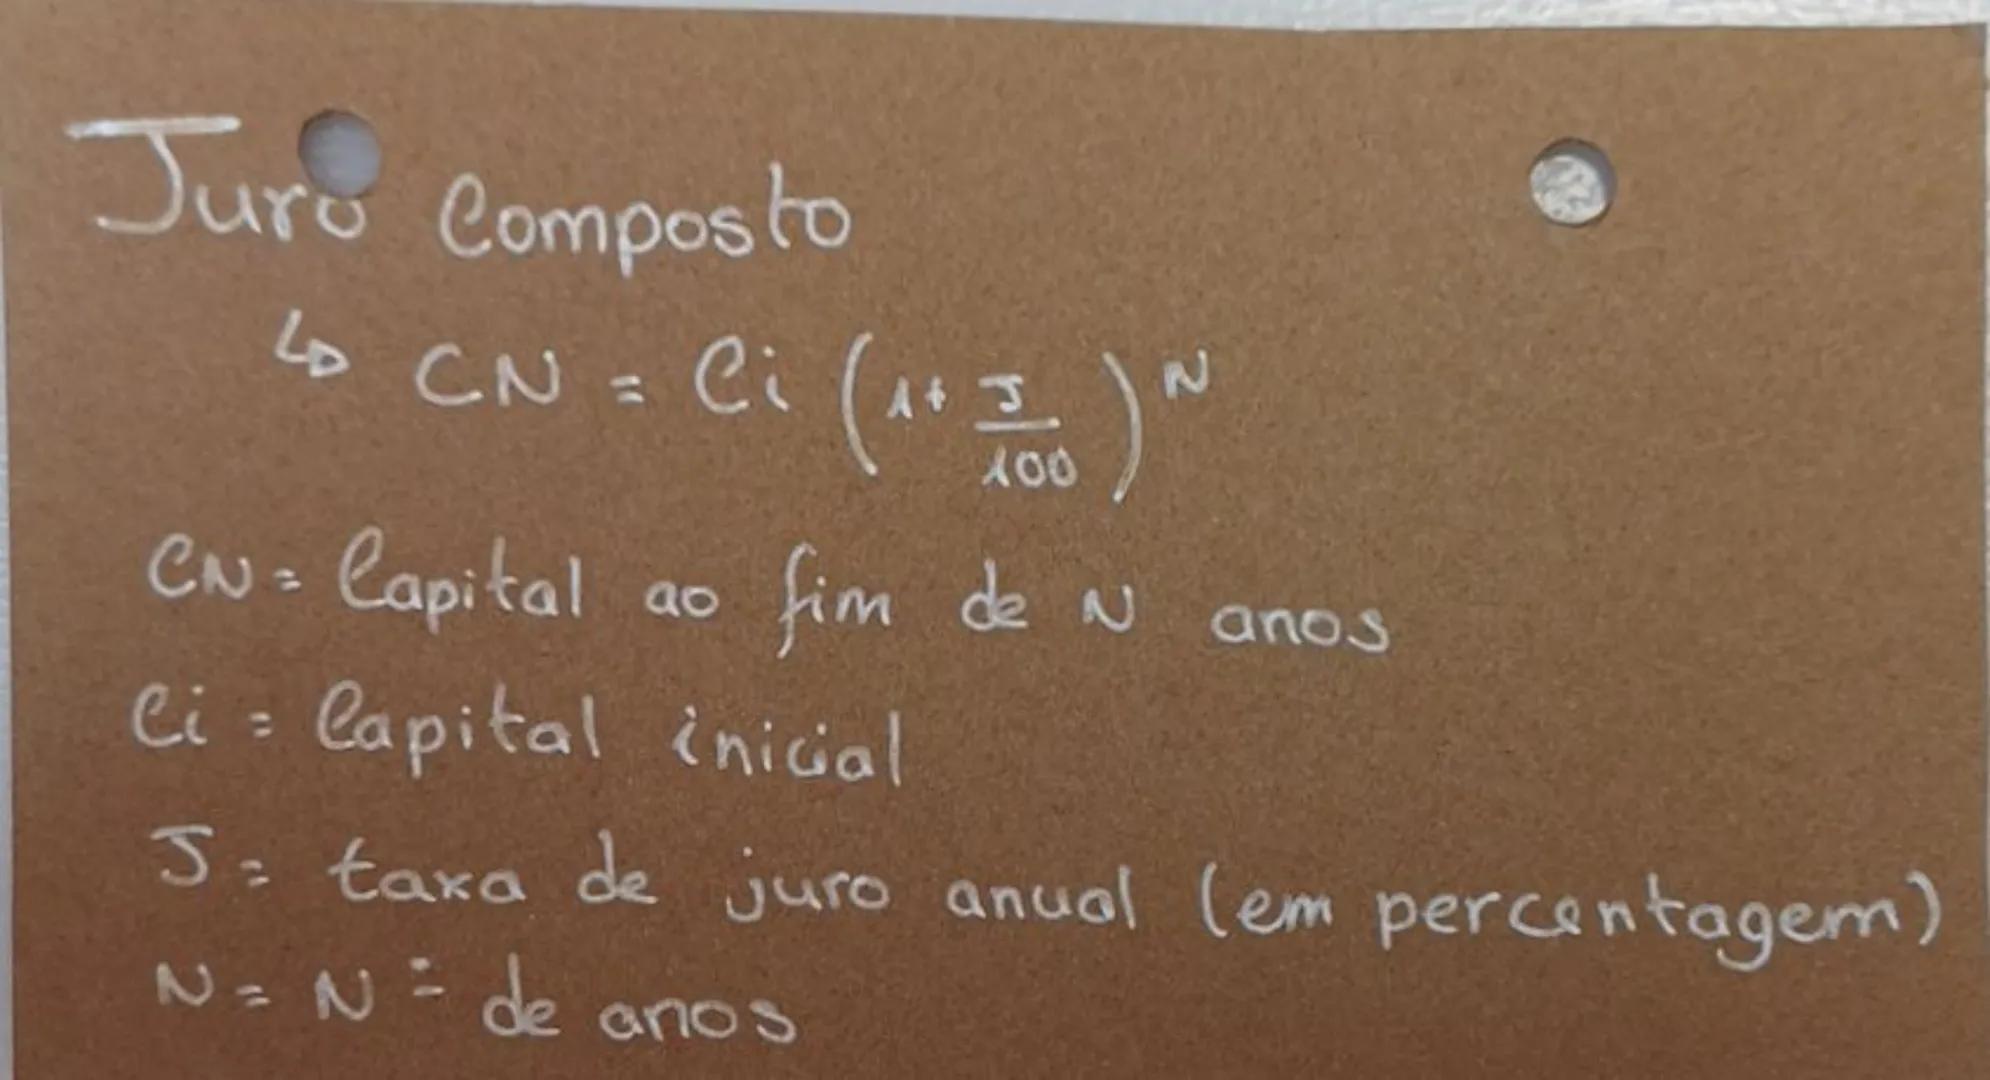 Juro Composto
↳ CN = Ci (1 + J/100)^N
CN = Capital ao fim de N anos
Ci = Capital inicial
J = taxa de juro anual (em percentagem)
N = Nº de anos